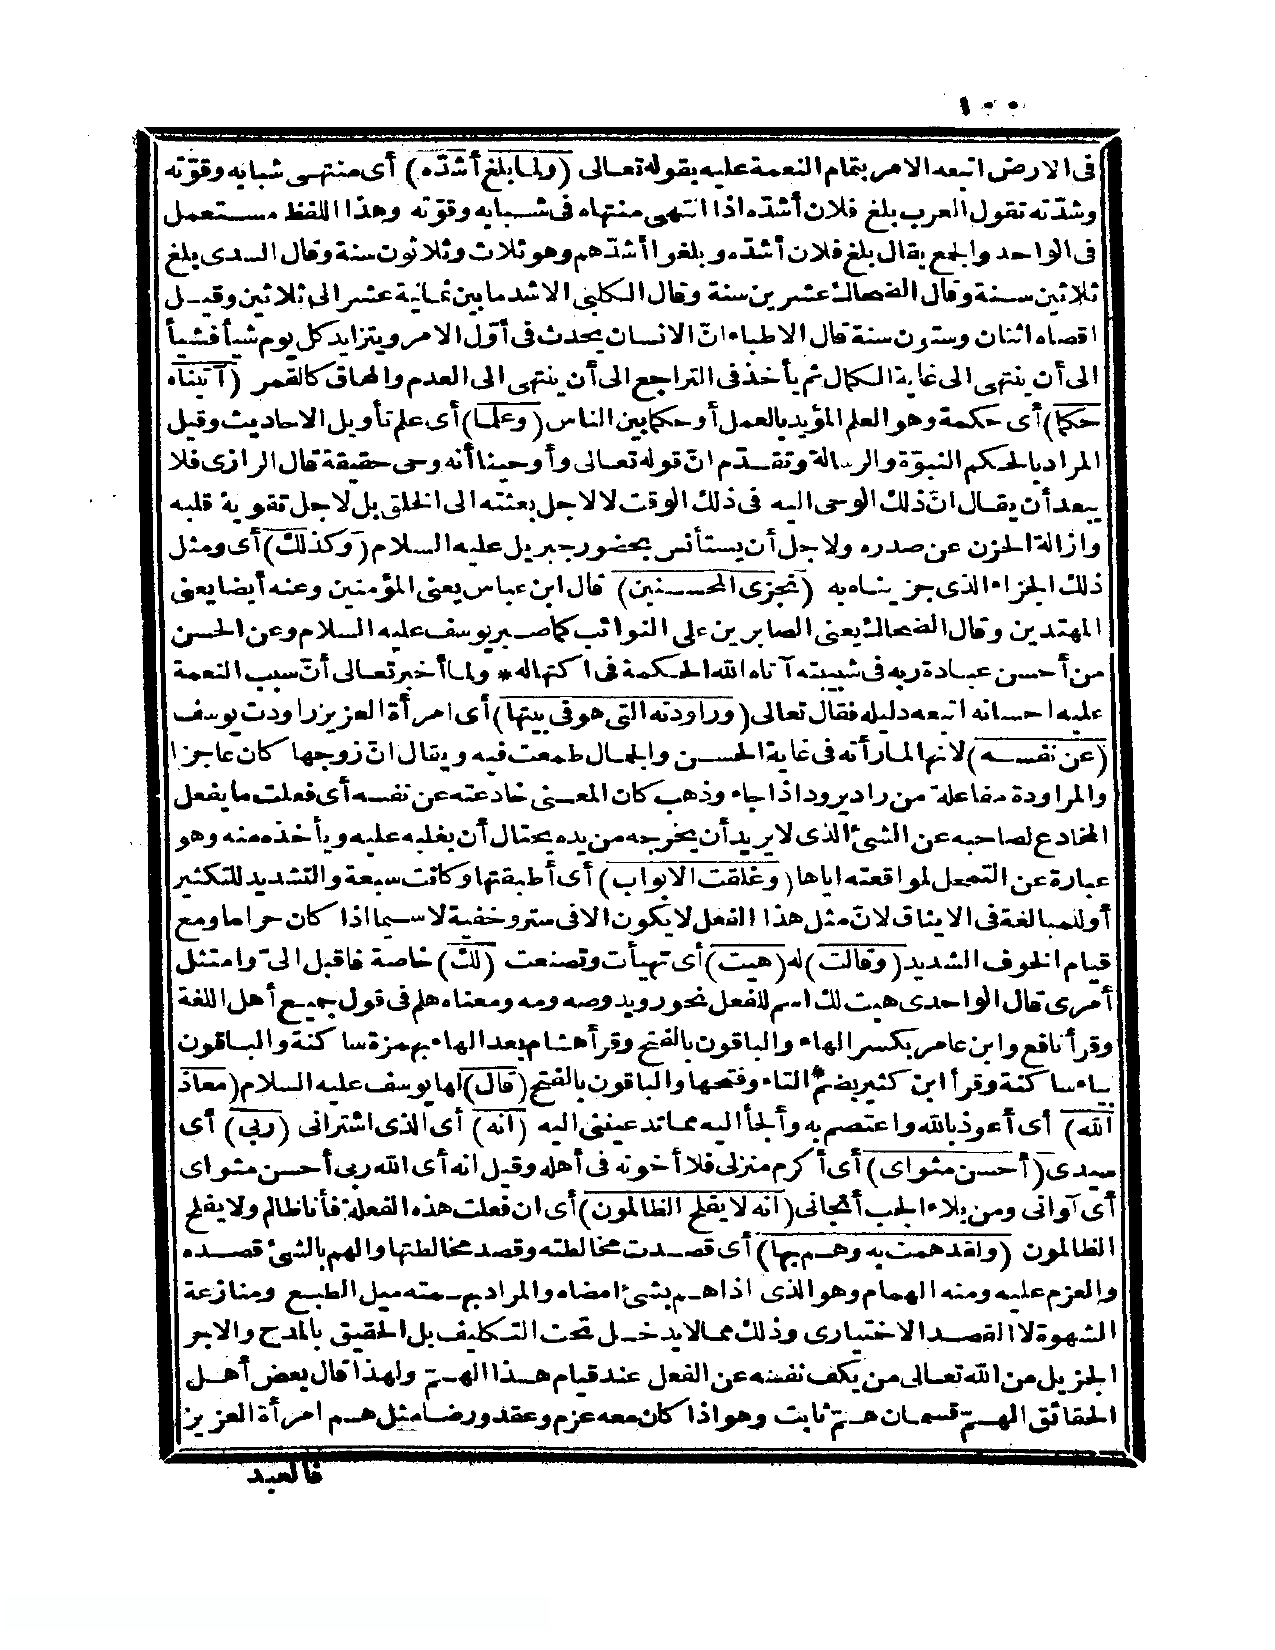 ١٠٠
فى الارض اتبعه الامر بتمام النعمة عليه بقوله تعالى (ولما بلغ أشدّه) أى منتهى شبابه وقوّته
وشدّته تقول العرب بلغ فلان أشدّه اذا انتهى منتهاه فى شبابه وقوّته وهذا اللفظ مستعمل
فى الواحد والجمع يقال بلغ فلان أشدّه وبلغوا أشدّهم وهو ثلاث وثلاثون سنة وقال السدى بلغ
ثلاثين سنة وقال الضحاك عشرين سنة وقال الكلبى الاشد ما بين ثمانية عشر الى ثلاثين وقيل
اقصاه اثنان وستون سنة قال الاطباء انّ الانسان يحدث فى أوّل الامر ويتزايد كل يوم شيأ فشيأ
الى أن ينتهى الى غاية الكمال ثم يأخذ فى التراجع الى أن ينتهى الى العدم والمحاق كالقمر (آتيناه
حكما) أى حكمة وهو العلم المؤيد بالعمل أو حكما بين الناس (وعلما) أى علم تأويل الاحاديث وقيل
المراد بالحكم النبوّة والرسالة وتقدّم انّ قوله تعالى وأوحينا أنه وحى حقيقة قال الرازى فلا
يبعد أن يقال انّ ذلك الوحى اليه فى ذلك الوقت لا لاجل بعثته الى الخلق بل لاجل تقوية قلبه
وازالة الحزن عن صدره ولاجل أن يستأنس بحضور جبريل عليه السلام (وكذلك) أى ومثل
ذلك الجزاء الذى جزيناه به (نجزى المحسنين) قال ابن عباس يعنى المؤمنين وعنه أيضا يعنى
المهتدين وقال الضحاك يعنى الصابرين على النوائب كما صبر يوسف عليه السلام وعن الحسن
من أحسن عبادة ربه فى شبيبته آتاه الله الحكمة فى اكتهاله * ولما أخبر تعالى أنّ سبب النعمة
عليه احسانه اتبعه دليله فقال تعالى (وراودته التى هو فى بيتها) أى امرأة العزيز راودت يوسف
(عن نفسه) لانها لما رأته فى غاية الحسن والجمال طمعت فيه ويقال انّ زوجها كان عاجزا
والمراودة مفاعلة من راد يرود اذا جاء وذهب كان المعنى خادعته عن نفسه أى فعلت ما يفعل
المخادع لصاحبه عن الشئ الذى لا يريد أن يخرجه من يده يحتال أن يغلبه عليه ويأخذه منه وهو
عبارة عن التمحل لمواقعته اياها (وغلقت الابواب) أى أطبقتها وكانت سبعة والتشديد للتكثير
أو للمبالغة فى الايثاق لانّ مثل هذا الفعل لا يكون الا فى ستر وخفية لا سيما اذا كان حراما ومع
قيام الخوف الشديد (وقالت) له (هيت) أى تهيأت وتصنعت (لك) خاصة فاقبل الىّ وامتثل
أمرى قال الواحدى هيت لك اسم للفعل نحو رويد وصه ومه ومعناه هلم فى قول جميع أهل اللغة
وقرأ نافع وابن عامر بكسر الهاء والباقون بالفتح وقرأ هشام بعد الهاء بهمزة ساكنة والباقون
بياء ساكنة وقرأ ابن كثير بضم التاء وفتحها والباقون بالفتح (قال) لها يوسف عليه السلام (معاذ
الله) أى أعوذ بالله واعتصم به وألجأ اليه مما تدعيننى اليه (انه) أى الذى اشترانى (ربى) أى
سيدى (أحسن مثواى) أى أكرم منزلى فلا أخونه فى أهله وقيل انه أى الله ربى أحسن مثواى
أى آوانى ومن بلاء الجب أنجانى (انه لا يفلح الظالمون) أى ان فعلت هذه الفعلة فأنا ظالم ولا يفلح
الظالمون (ولقد همت به وهم بها) أى قصدت مخالطته وقصد مخالطتها والهم بالشئ قصده
والعزم عليه ومنه الهمام وهو الذى اذا هم بشئ امضاه والمراد بهمته ميل الطبع ومنازعة
الشهوة لا القصد الاختيارى وذلك مما لا يدخل تحت التكليف بل الحقيق بالمدح والاجر
الجزيل من الله تعالى من يكف نفسه عن الفعل عند قيام هذا الهمّ ولهذا قال بعض أهل
الحقائق الهمّ قسمان همّ ثابت وهو اذا كان معه عزم وعقد ورضا مثل هم امرأة العزيز
فالعبد